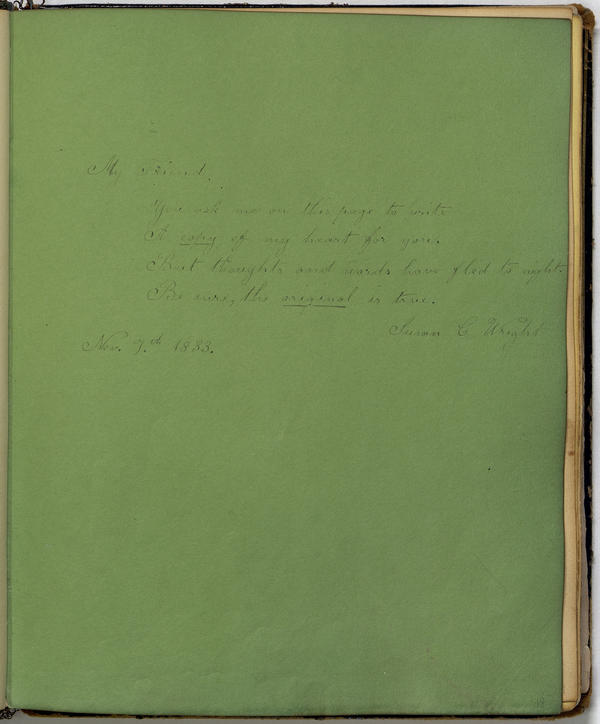 My Friend,
You ask me on this page to write
A copy of my heart for you.
But thoughts and words have fled to night.
Be sure, the original is true.
Susan C Wright
Nov. 7th 1833.